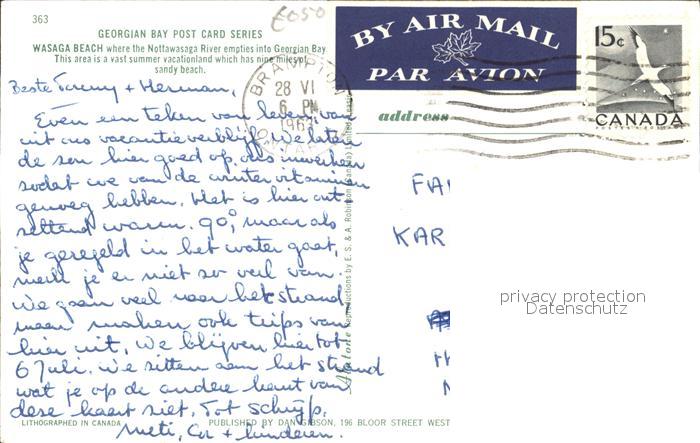 363
£050
GEORGIAN BAY POST CARD SERIES
WASAGA BEACH where the Nottawasaga River empties into Georgian Bay
This area is a vast summer vacationland which has nine miles of
sandy beach.
BY AIR MAIL
PAR AVION
15c
CANADA
POSTES POSTAGE
BRAMPTON
28 VI
6 PM
196
ONTARIO
address
Beste Tonny + Herman,
Even een teken van leven van
uit ons vacantieverblijf. We laten
de zon hier goed op ons inwerken
zodat we van de winter vitaminen
genoeg hebben. Het is hier ont
zettend warm. 90°, maar als
je geregeld in het water gaat,
merk je er niet zo veel van.
We gaan veel naar het strand
maar maken ook trips van
hier uit. We blijven hier tot
6 juli. We zitten aan het strand
wat je op de andere kant van
deze kaart ziet. Tot schrijfs,
Meti, Cor + kinderen.
FA
KAR
Reproductions by E. S. & A. Robinson (Canada) Limited
privacy protection
Datenschutz
LITHOGRAPHED IN CANADA
PUBLISHED BY DAN GIBSON, 196 BLOOR STREET WEST